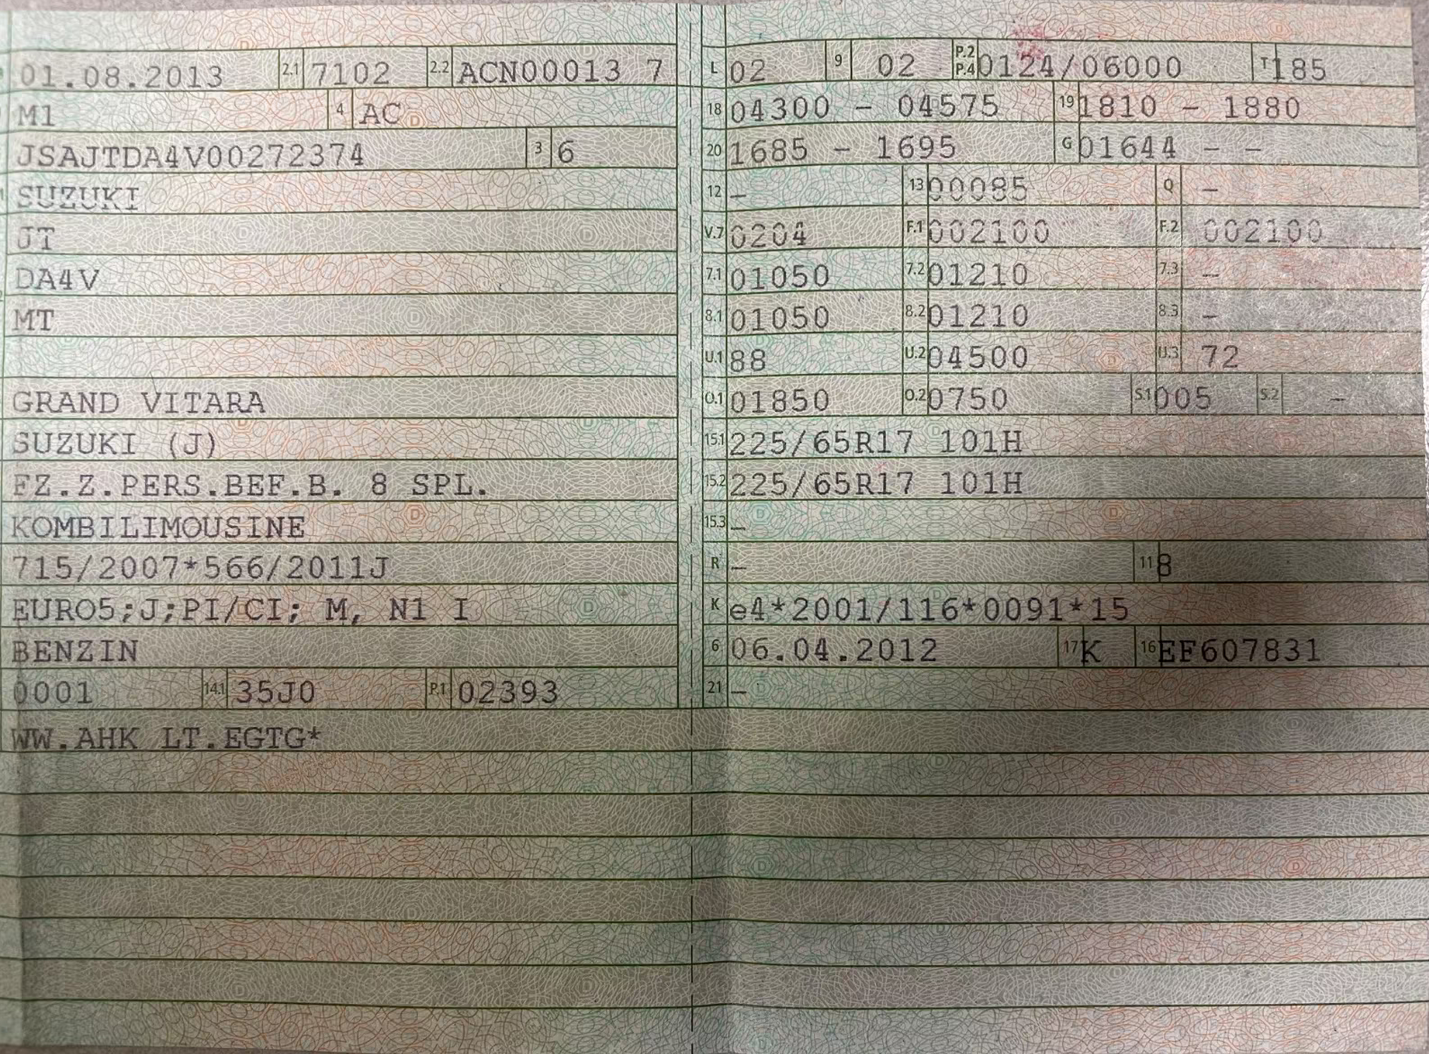 01.08.2013 2.1 7102 2.2 ACN00013 7
M1 4 AC
JSAJTDA4V00272374 3 6
SUZUKI
JT
DA4V
MT
GRAND VITARA
SUZUKI (J)
FZ.Z.PERS.BEF.B. 8 SPL.
KOMBILIMOUSINE
715/2007*566/2011J
EURO5;J;PI/CI; M, N1 I
BENZIN
0001 14.1 35J0 P.1 02393
WW.AHK LT.EGTG*
L 02 9 02 P.2 P.4 0124/06000 T 185
18 04300 - 04575 19 1810 - 1880
20 1685 - 1695 G 01644 - -
12 - 13 00085 Q -
V.7 0204 F.1 002100 F.2 002100
7.1 01050 7.2 01210 7.3 -
8.1 01050 8.2 01210 8.3 -
U.1 88 U.2 04500 U.3 72
O.1 01850 O.2 0750 S.1 005 S.2 -
15.1 225/65R17 101H
15.2 225/65R17 101H
15.3 -
R - 11 8
K e4*2001/116*0091*15
6 06.04.2012 17 K 16 EF607831
21 -